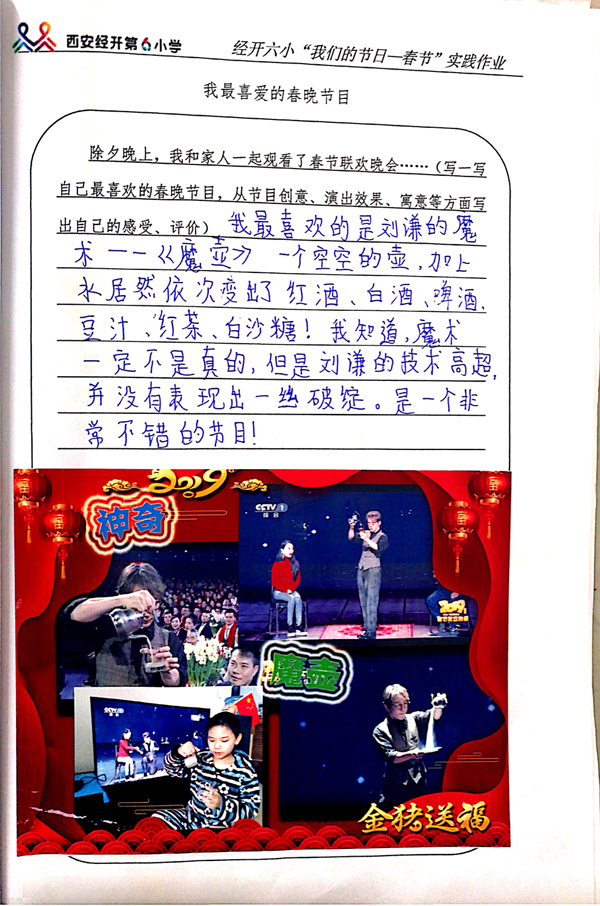 西安经开第6小学
经开六小“我们的节日—春节”实践作业
我最喜爱的春晚节目
除夕晚上，我和家人一起观看了春节联欢晚会……（写一写
自己最喜欢的春晚节目，从节目创意、演出效果、寓意等方面写
出自己的感受、评价） 我最喜欢的是刘谦的魔
术——《魔壶》 一个空空的壶，加上
水居然依次变出了红酒、白酒、啤酒、
豆汁、红茶、白沙糖！我知道，魔术
一定不是真的，但是刘谦的技术高超，
并没有表现出一丝破绽。是一个非
常不错的节目！
2019
神奇
CCTV 1
综合
2019
魔壶
CCTV 1
金猪送福